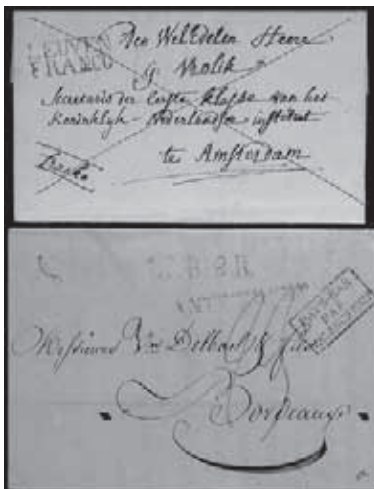 LEUVEN
FRANCO
Den WelEdelen Heere
G Vrolik
Secretaris der Eerste Klasse van het
Koninklijk-Nederlandsch instituut
te Amsterdam
Franko
L.B.2.R
PAYS-BAS
PAR
Messieurs Ve Delbos & fils
Bordeaux